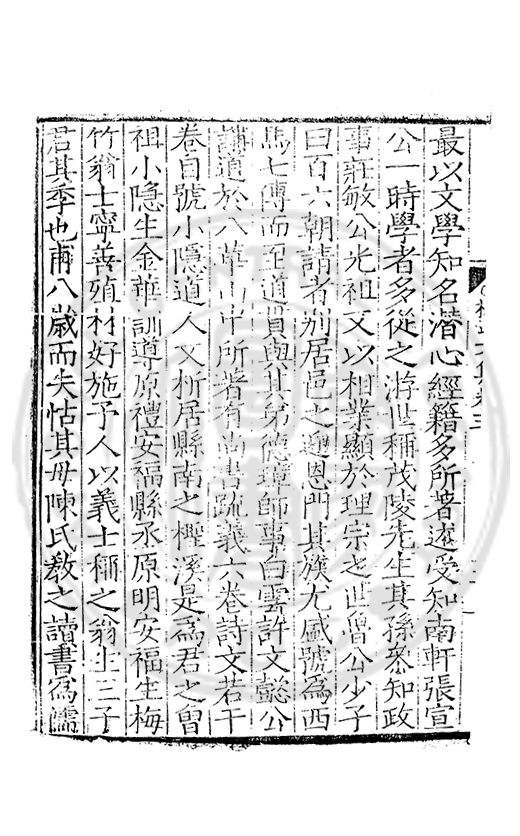 最以文學知名潛心經籍多所著述受知南軒張宣
公一時學者多從之游世稱茂陵先生其孫參知政
事莊敏公光祖又以相業顯於理宗之世曾公少子
曰百六朝請者別居邑之迎恩門其族尤盛號為西
馬七傳而至道貫與其弟德璋師事白雲許文懿公
講道於八華山中所著有尚書疏義六卷詩文若干
卷自號小隱道人又析居縣南之檡溪是為君之曾
祖小隱生金華訓導原禮安福縣丞原明安福生梅
竹翁士寧善殖材好施予人以義士稱之翁生三子
君其季也甫八歲而失怙其母陳氏教之讀書為儒